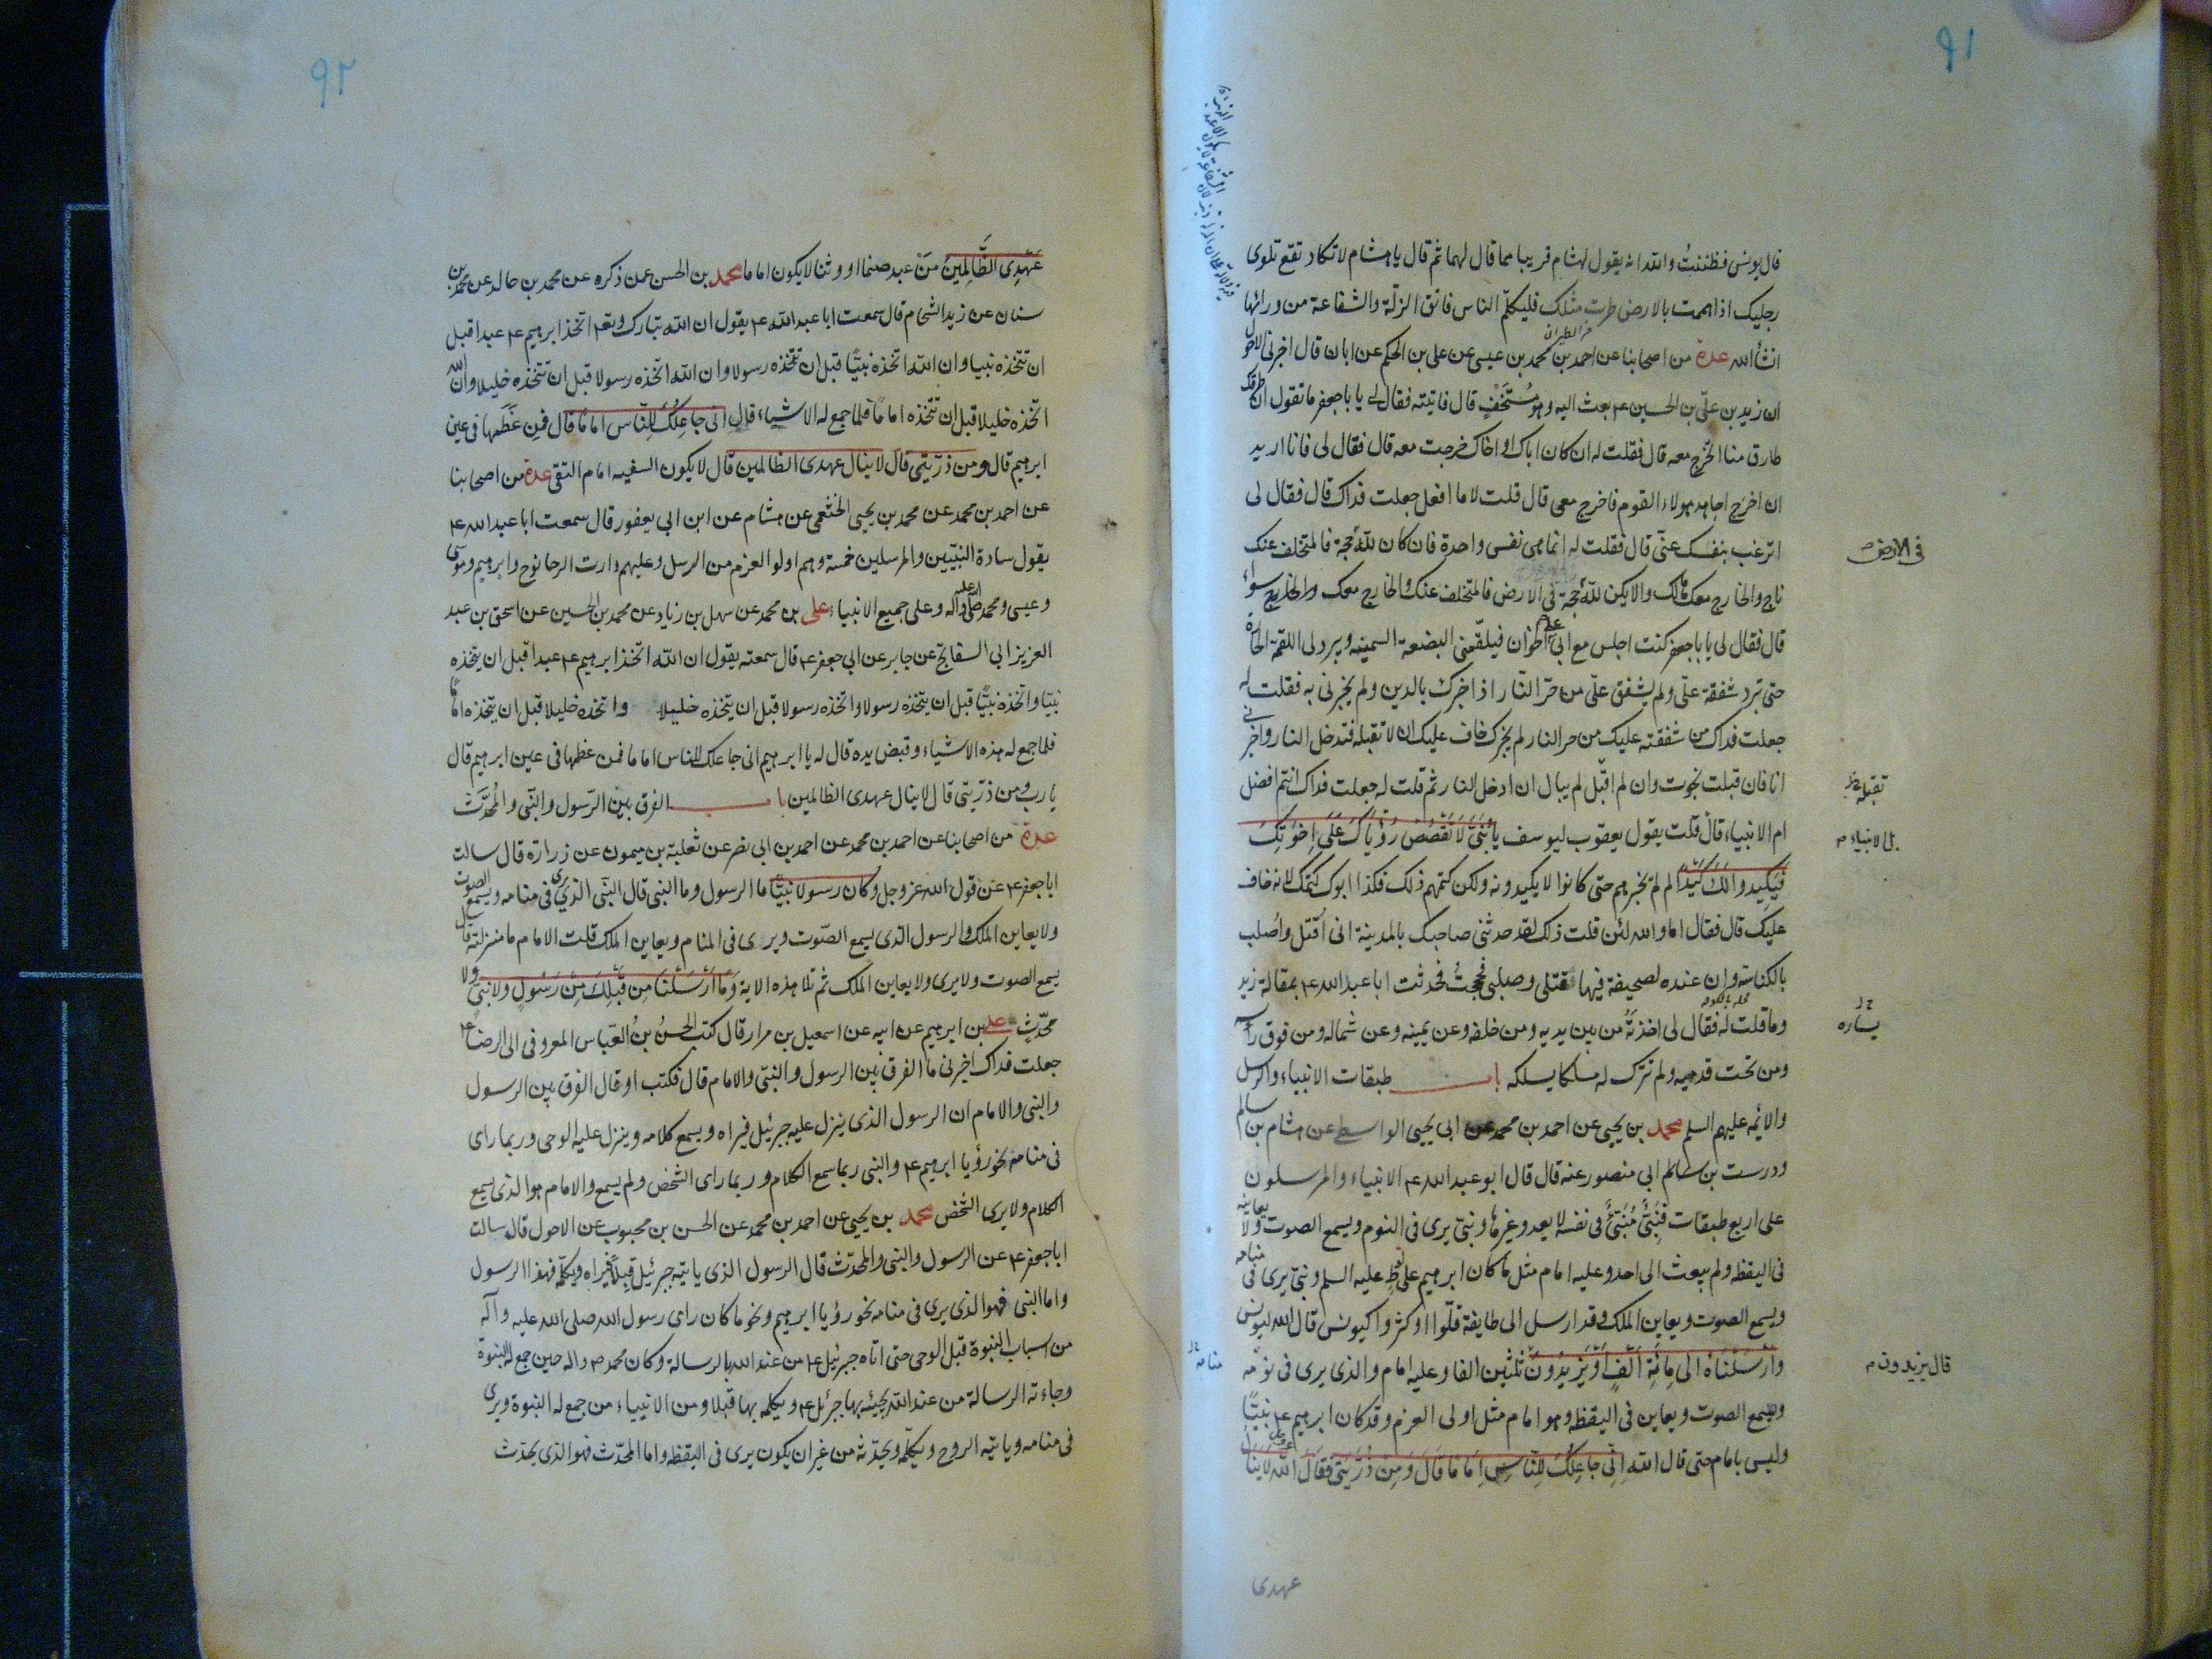 ٩١
قال يونس فظننتُ والله انه يقول لهشام قريبا مما قال لهما ثم قال يا هشام لا تكاد تقع تلوى
رجليك اذا هممت بالارض طرت مثلك فليكلّم الناس فاتق الزلّة والشفاعة من ورائها
انشأ الله عدة من اصحابنا عن احمد بن محمد بن عيسى عن على بن الحكم عن ابان قال اخبرنى الاحول
ان زيد بن علىّ بن الحسين ع بعث اليه وهو مُسْتَخْفٍ قال فاتيته فقال لى يا باجعفر ما تقول ان طرقك
طارق منا اتخرج معه قال فقلت له ان كان اباك او اخاك خرجت معه قال فقال لى فانا اريد
ان اخرج اجاهد هولاء القوم فاخرج معى قال قلت لا ما افعل جعلت فداك قال فقال لى
اترغب بنفسك عنّى قال فقلت له انما هى نفس واحدة فان كان للّه حجة فالمتخلف عنك
ناج والخارج معك هالك والا يكن للّه حجة فى الارض فالمتخلف عنك والخارج معك سواء
قال فقال لى يا باجعفر كنت اجلس مع ابى على الخوان فيلقمنى البضعة السمينه ويبرد لى اللقمة الحارة
حتى تبرد شفقة علىّ ولم يشفق علىّ من حرّ النار اذا اخبرك بالدين ولم يخبرنى به فقلت له
جعلت فداك من شفقته عليك من حر النار لم يخبرك خاف عليك ان لا تقبله فتدخل النار واخبرنى
انا فان قبلت نجوت وان لم اقبل لم يبال ان ادخل النار ثم قلت له جعلت فداك انتم افضل
ام الانبياء قال قلت يقول يعقوب ليوسف يا بُنَىَّ لَا تَقْصُصْ رُؤْيَاكَ عَلَى اِخْوَتِكَ
فَيَكِيدُوا لَكَ كَيْدًا لم لم يخبرهم حتى كانوا لا يكيدونه ولكن كتمهم ذلك فكذا ابوك كتمك لانه خاف
عليك قال فقال اما والله لئن قلت ذلك لقد حدثنى صاحبك بالمدينة انى اُقتل واُصلب
بالكناسة وان عنده لصحيفة فيها قتلى وصلبى فحججتُ فحدثت ابا عبد الله ع بمقالة زيد
وما قلت له فقال لى اخذتَهُ من بين يديه ومن خلفه وعن يمينه وعن شماله ومن فوق رأسه
ومن تحت قدميه ولم تترك له مسلكا يسلكه باب طبقات الانبياء والرسل
والائمه عليهم السلم محمد بن يحيى عن احمد بن محمد عن ابى يحيى الواسطى عن هشام بن سالم
ودرست بن ابى منصور عنه قال قال ابو عبد الله ع الانبياء والمرسلون
على اربع طبقات فنبىٌّ مُنَبَّأٌ فى نفسه لا يعدو غيرها ونبىّ يرى فى النوم ويسمع الصوت ولا يعاينه
فى اليقظه ولم يبعث الى احد وعليه امام مثل ما كان ابرهيم على لوط عليه السلم ونبىّ يرى فى منامه
ويسمع الصوت ويعاين الملك وقد ارسل الى طايفة قلّوا او كثروا كيونس قال الله ليونس
وَاَرْسَلْنَاهُ اِلَى مِائَةِ اَلْفٍ اَوْ يَزِيدُونَ ثلثين الفا وعليه امام والذى يرى فى نومه
ويسمع الصوت ويعاين فى اليقظه وهو امام مثل اولى العزم وقد كان ابرهيم ع نبيّا
وليس بامام حتى قال الله اِنِّى جَاعِلُكَ لِلنَّاسِ اِمَامًا قَالَ وَمِنْ ذُرِّيَّتِى فقال الله لا ينال
فى الارض
تقبله
يا الانبياء
يساره
قال يزيدون
منامه
عهدى
٩٢
عَهْدِى الظَّالِمِينَ مَنْ عبد صنما او وثنا لا يكون اماما محمد بن الحسن عمن ذكره عن محمد بن خالد عن محمد بن
سنان عن زيد الشحام قال سمعت ابا عبد الله ع يقول ان الله تبارك وتع اتخذ ابرهيم ع عبدا قبل
ان تتخذه نبيا وان الله اتخذه نبيّا قبل ان تتخذه رسولا وان الله اتخذه رسولا قبل ان تتخذه خليلا وان الله
اتخذه خليلا قبل ان تتخذه اماماً فلما جمع له الاشياء قال انى جاعِلُكَ لِلنّاس امامًا قال فمِن عَظَمها فى عين
ابرهيم قال ومن ذرّيتى قال لا ينال عهدى الظالمين قال لا يكون السفيه امام التقى عدة من اصحابنا
عن احمد بن محمد عن محمد بن يحيى الخثعمى عن هشام عن ابن ابى يعفور قال سمعت ابا عبد الله ع
يقول سادة النبيّين والمرسلين خمسة وهم اولوا العزم من الرسل وعليهم دارت الرحا نوح وابرهيم وموسى
وعيسى ومحمد صلى الله عليه وآله وعلى جميع الانبياء على بن محمد عن سهل بن زياد عن محمد بن الحسين عن اسحق بن عبد
العزيز ابى السفاتج عن جابر عن ابى جعفر ع قال سمعته يقول ان الله اتخذ ابرهيم ع عبدا قبل ان يتخذه
نبيّا واتخذه نبيّا قبل ان يتخذه رسولا واتخذه رسولا قبل ان يتخذه خليلا واتخذه خليلا قبل ان يتخذه اماما
فلما جمع له هذه الاشياء وقبض يده قال له يا ابرهيم انى جاعلك للناس اماما فمن عظمها فى عين ابرهيم قال
يا رب ومن ذرّيتى قال لا ينال عهدى الظالمين باب الفرق بين الرّسول والنّبى والمُحدَّث
عدة من اصحابنا عن احمد بن محمد عن احمد بن ابى نصر عن ثعلبة بن ميمون عن زرارة قال سالت
ابا جعفر ع عن قول الله عز وجل وَكَان رسولا نبيّا ما الرسول وما النبى قال النّبى الذى يرى فى منامه ويسمع الصوت
ولا يعاين الملك والرسول الذى يسمع الصّوت ويرى فى المنام ويعاين الملك قلت الامام ما منزلته قال
يسمع الصوت ولا يرى ولا يعاين الملك ثم تلا هذه الاية وَمَا اَرْسَلْنَا مِن قَبْلِكَ مِنْ رَسُولٍ ولا نبىّ ولا
محدّثٍ على بن ابرهيم عن ابيه عن اسمعيل بن مرار قال كتب الحسنُ بنُ العّباس المعروفى الى الرضا ع
جعلت فداك اخبرنى ما الفرق بين الرسول والنبىّ والامام قال فكتب او قال الفرق بين الرسول
والنبى والامام ان الرسول الذى ينزل عليه جبرئيل فيراه ويسمع كلامه وينزل عليه الوحى وربما راى
فى منامه نحو رؤيا ابرهيم ع والنبى ربما سمع الكلام وربما راى الشخص ولم يسمع والامام هو الذى يسمع
الكلام ولا يرى الشخص محمد بن يحيى عن احمد بن محمد عن الحسن بن محبوب عن الاحول قال سالت
ابا جعفر ع عن الرسول والنبى والمحدّث قال الرسول الذى ياتيه جبرئيل قِبلًا فيراه ويكلّمه فهذا الرسول
واما النبى فهو الذى يرى فى منامه نحو رؤيا ابرهيم ونحو ما كان راى رسول الله صلى الله عليه وآله
من اسباب النبوة قبل الوحى حتى اتاه جبرئيل ع من عند الله بالرسالة وكان محمد ص واله حين جمع له النبوة
وجاءته الرسالة من عند الله يجيئه بها جبرئيل ع ويكلمه بها قبلا ومن الانبياء من جمع له النبوة ويرى
فى منامه وياتيه الروح ويكلّمه ويحدّثه من غير ان يكون يرى فى اليقظه واما المحدّث فهو الذى يحدّث